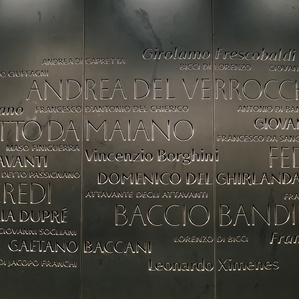 Girolamo Frescobaldi
ANDREA DI CAPRETTA
BICCI DI LORENZO GIOVAN
O GUFFAGNI
ANDREA DEL VERROCCH
FRANCESCO D'ANTONIO DEL CHIERICO ANTONIO DI BA
TTO DA MAIANO GIOVAN
FRANCESCO DA SAN
MASO FINIGUERRA
AVANTI Vincenzio Borghini FEI
DETTO PASSIGNANO DOMENICO DEL GHIRLANDA
REDI ATTAVANTE DEGLI ATTAVANTI FRA
IA DUPRÉ BACCIO BANDI
GIOVANNI SOGLIANI LORENZO DI BICCI Fran
GAETANO BACCANI
DI JACOPO FRANCHI Leonardo Ximenes